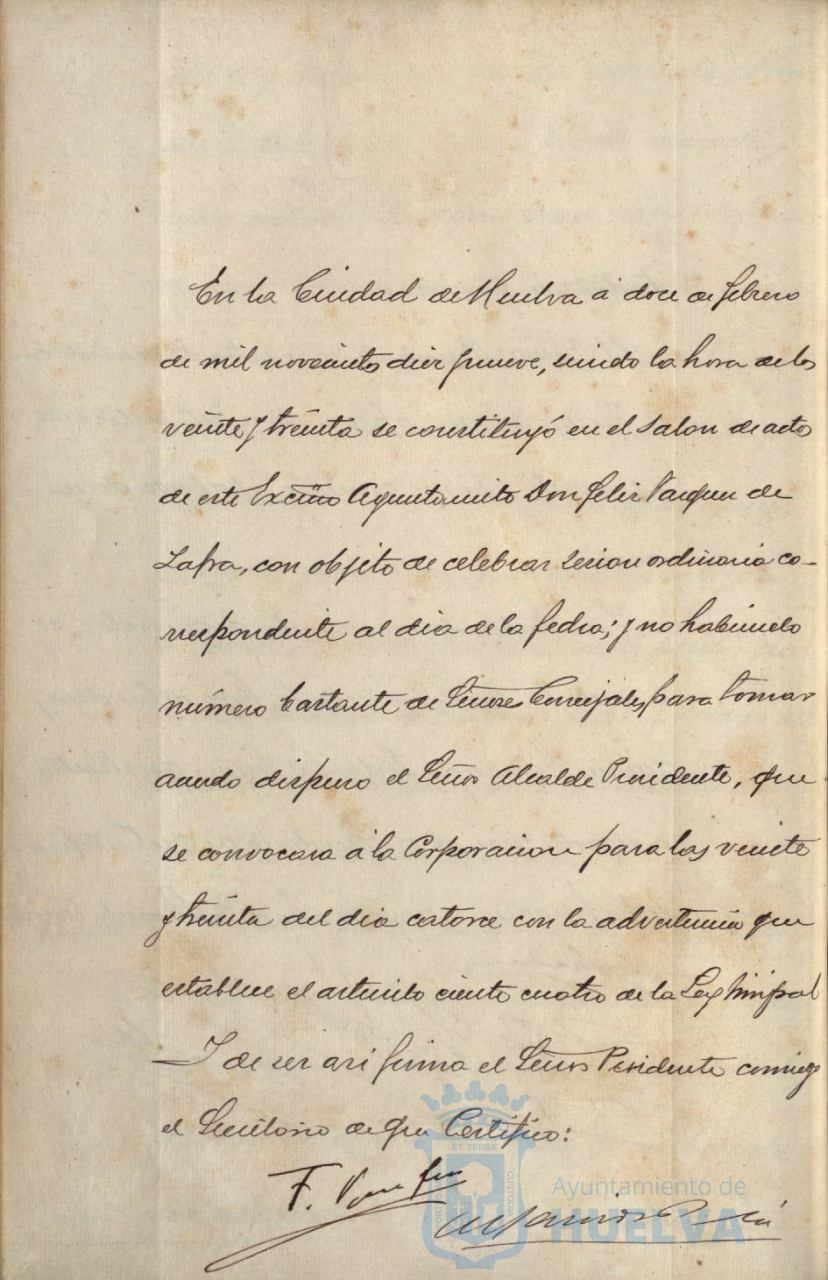 En la Ciudad de Huelva á doce de febrero
de mil novecientos diez y nueve, siendo la hora de las
veinte y treinta se constituyó en el Salon de acto
de este Excmo Ayuntamiento Don Felix Vazquez de
Zafra, con objeto de celebrar sesion ordinaria co-
rrespondiente al dia de la fecha; y no habiendo
número bastante de Señores Concejales para tomar
acuerdo dispuso el Señor Alcalde Presidente, que
se convocara á la Corporacion para las veinte
y treinta del dia catorce con la advertencia que
establece el articulo ciento cuatro de la Ley Mnipal
Y de ser asi firma el Señor Presidente conmigo
el Secretario de que Certifico:
F.
ET TERRÆ
Ayuntamiento de
HUELVA